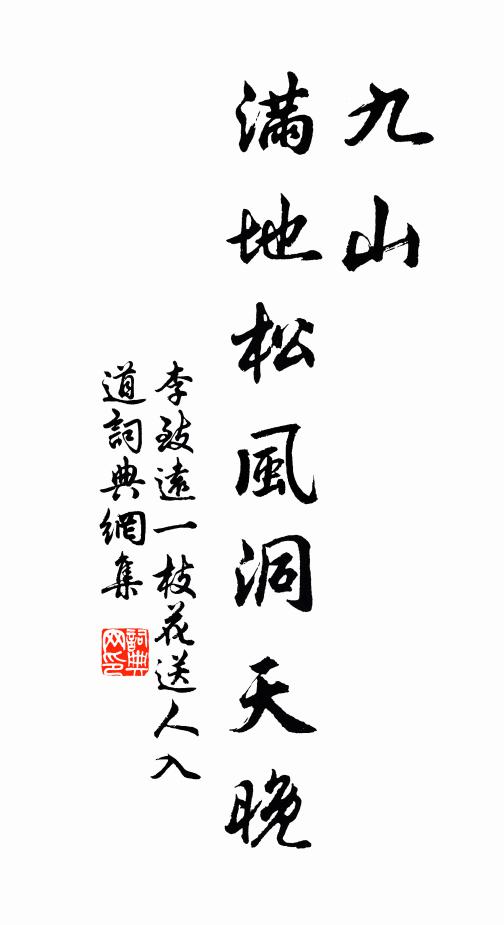 九山
滿地松風洞天晚
李致遠一枝花送人入
道詞典網集
詞典
网印